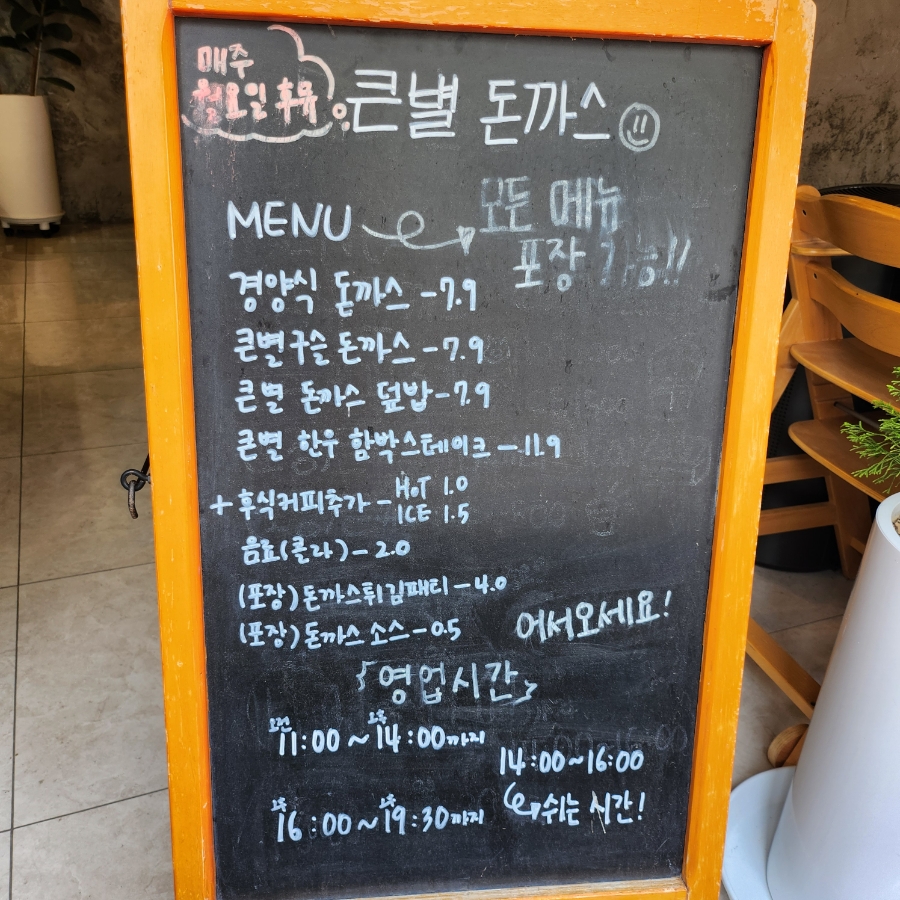 매주
월요일 휴뮤
큰별 돈까스
MENU
모든 메뉴
포장 가능!!
경양식 돈까스 - 7.9
큰별구슬 돈까스 - 7.9
큰별 돈까스 덮밥 - 7.9
큰별 한우 함박스테이크 - 11.9
+ 후식커피추가 - HOT 1.0
ICE 1.5
음료(콜라) - 2.0
(포장) 돈까스튀김패티 - 4.0
(포장) 돈까스 소스 - 0.5
어서오세요!
{영업시간}
오전 11:00 ~ 오후 14:00까지
14:00~16:00
쉬는 시간!
오후 16:00 ~ 오후 19:30까지